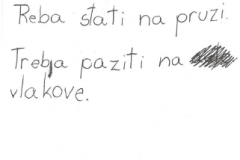 Reba stati na pruzi.
Trebja paziti na
vlakove.